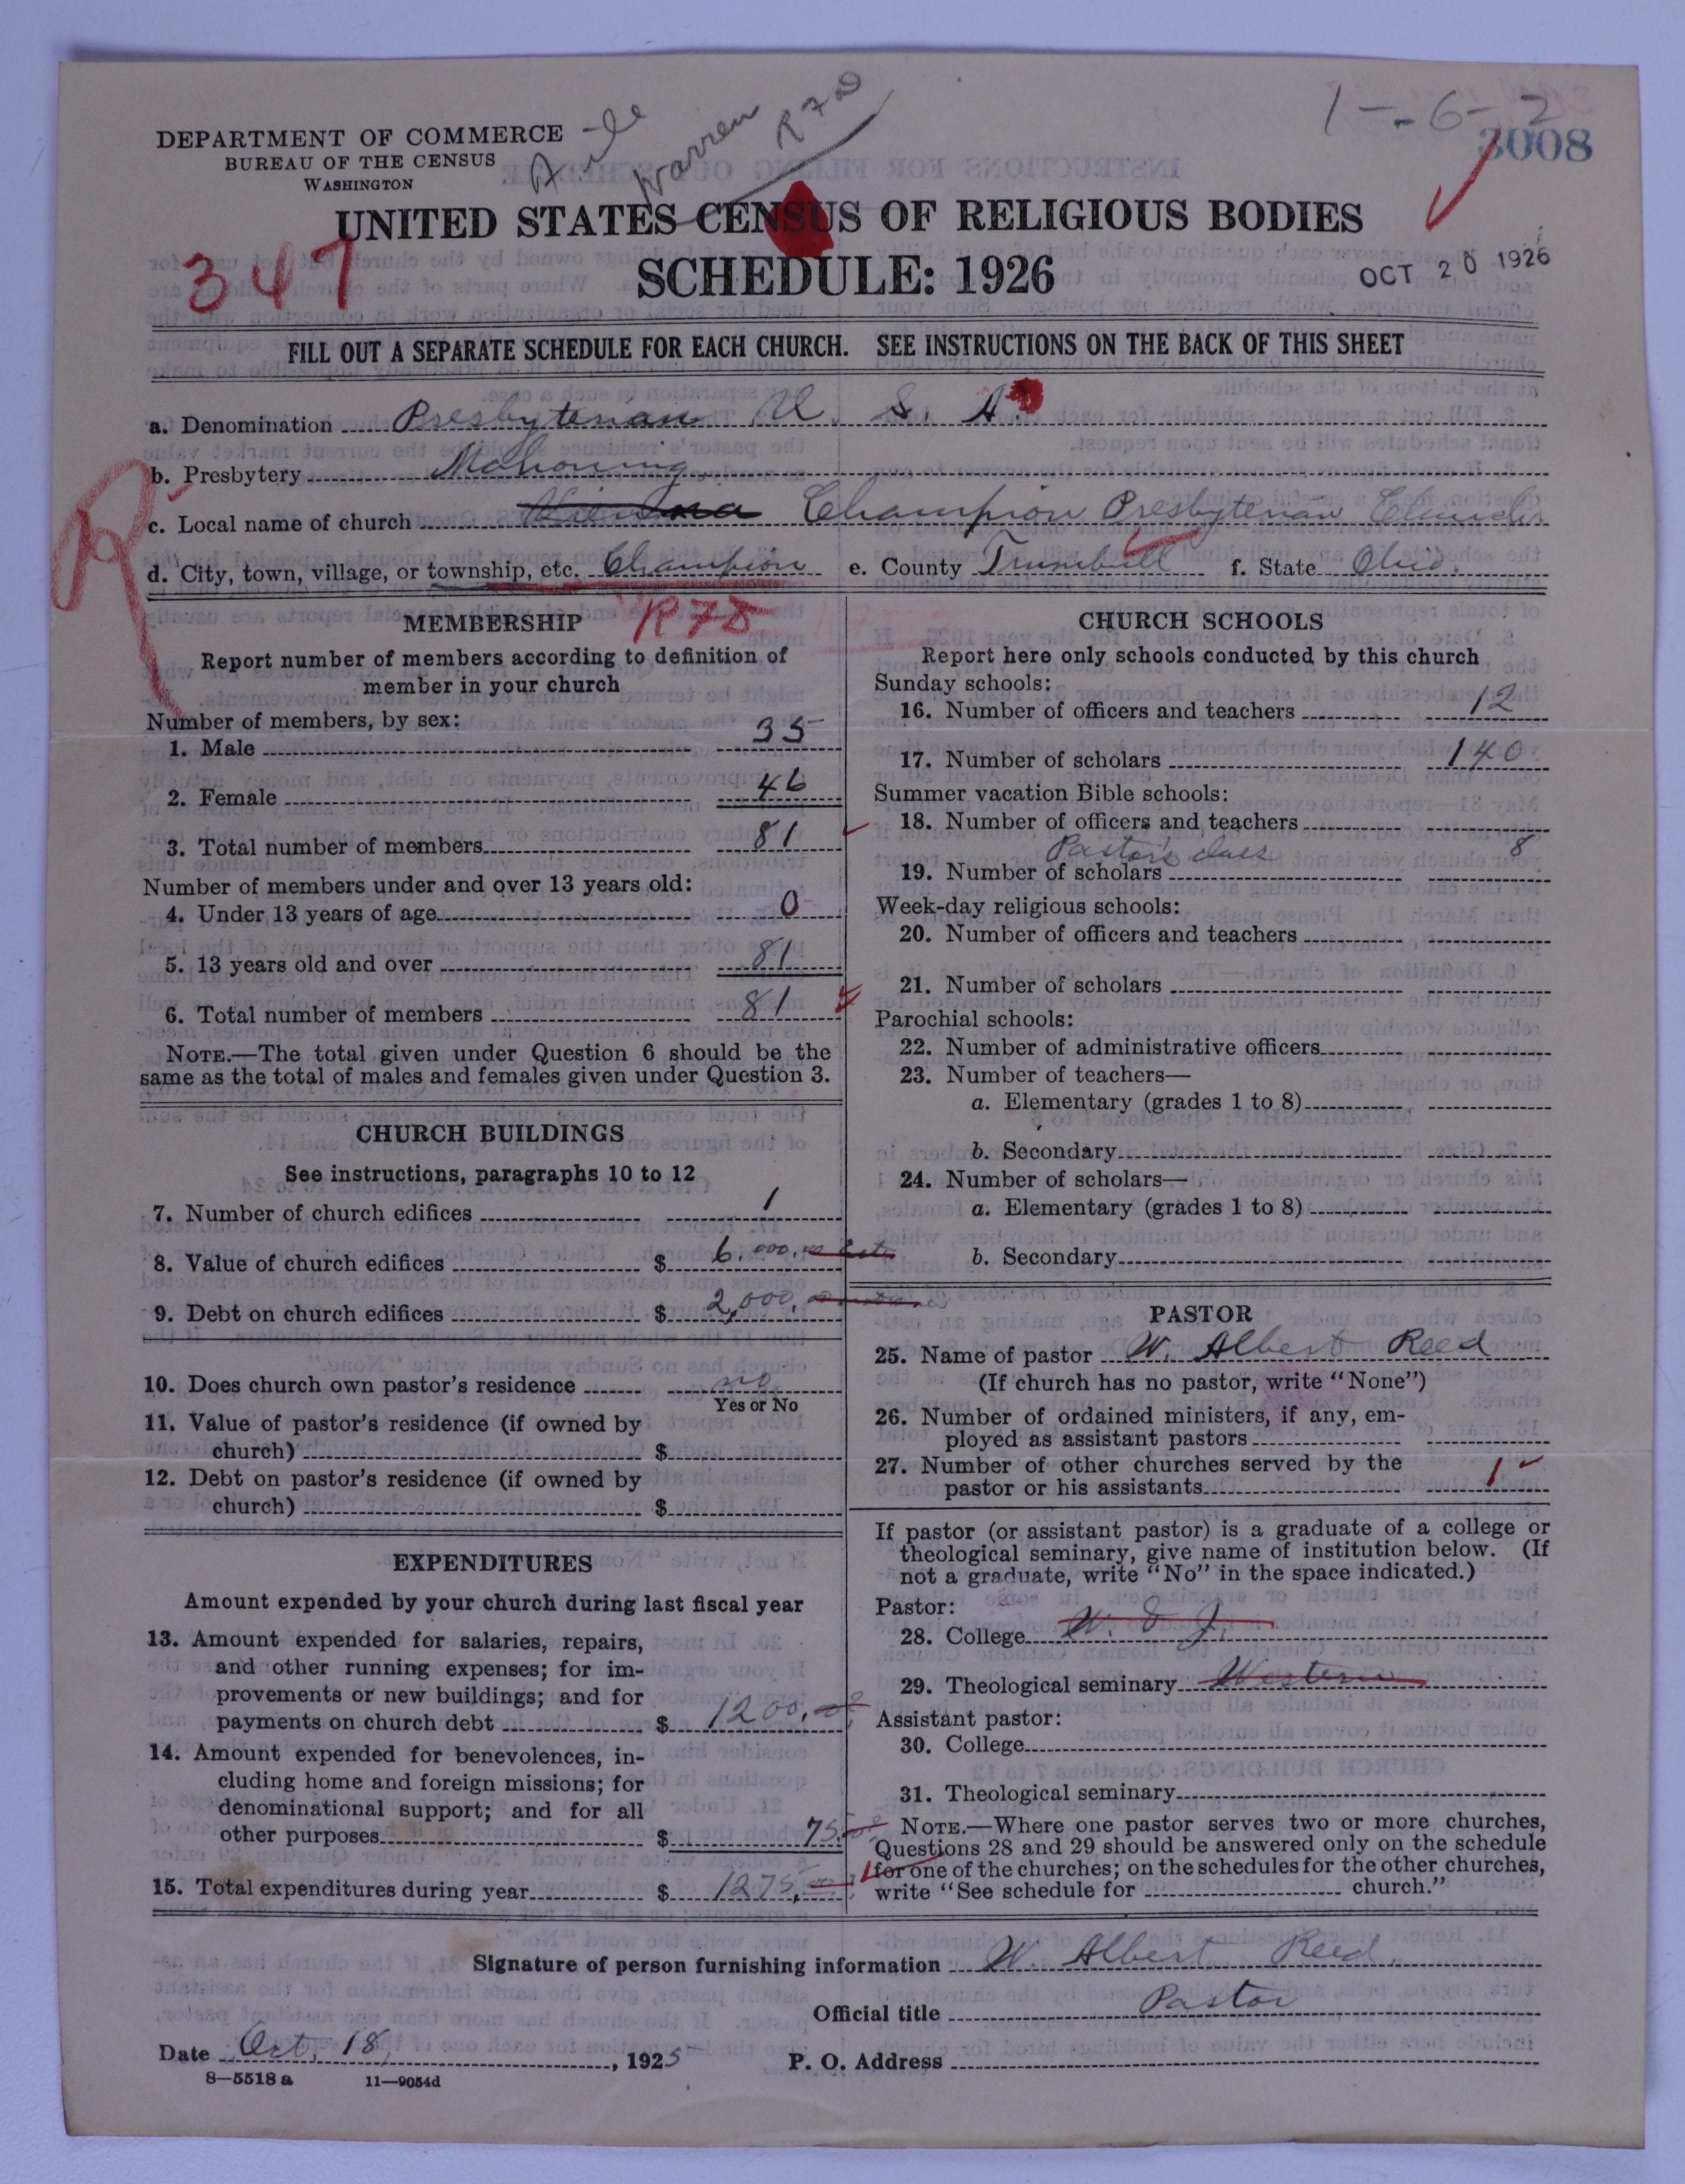 1--6-2
3008
DEPARTMENT OF COMMERCE
BUREAU OF THE CENSUS
WASHINGTON
Warren
R 7 D
UNITED STATES CENSUS OF RELIGIOUS BODIES
347
SCHEDULE: 1926
OCT 20 1926
FILL OUT A SEPARATE SCHEDULE FOR EACH CHURCH. SEE INSTRUCTIONS ON THE BACK OF THIS SHEET
a. Denomination Presbyterian U. S. A.
b. Presbytery Mahoning
c. Local name of church Vienna Champion Presbyterian Church
d. City, town, village, or township, etc. Champion e. County Trumbull f. State Ohio.
R
MEMBERSHIP
Report number of members according to definition of
member in your church
Number of members, by sex:
1. Male 35
2. Female 46
3. Total number of members 81
Number of members under and over 13 years old:
4. Under 13 years of age 0
5. 13 years old and over 81
6. Total number of members 81
NOTE.—The total given under Question 6 should be the
same as the total of males and females given under Question 3.
CHURCH BUILDINGS
See instructions, paragraphs 10 to 12
7. Number of church edifices 1
8. Value of church edifices $ 6.000.00
9. Debt on church edifices $ 2,000.00
10. Does church own pastor's residence no
Yes or No
11. Value of pastor's residence (if owned by
church) $
12. Debt on pastor's residence (if owned by
church) $
EXPENDITURES
Amount expended by your church during last fiscal year
13. Amount expended for salaries, repairs,
and other running expenses; for im-
provements or new buildings; and for
payments on church debt $ 1200.00
14. Amount expended for benevolences, in-
cluding home and foreign missions; for
denominational support; and for all
other purposes $ 75.00
15. Total expenditures during year $ 1275.00
CHURCH SCHOOLS
Report here only schools conducted by this church
Sunday schools:
16. Number of officers and teachers 12
17. Number of scholars 140
Summer vacation Bible schools:
18. Number of officers and teachers
Pastor's class 8
19. Number of scholars
Week-day religious schools:
20. Number of officers and teachers
21. Number of scholars
Parochial schools:
22. Number of administrative officers
23. Number of teachers—
a. Elementary (grades 1 to 8)
b. Secondary
24. Number of scholars—
a. Elementary (grades 1 to 8)
b. Secondary
PASTOR
25. Name of pastor W. Albert Reed
(If church has no pastor, write "None")
26. Number of ordained ministers, if any, em-
ployed as assistant pastors
27. Number of other churches served by the
pastor or his assistants 1
If pastor (or assistant pastor) is a graduate of a college or
theological seminary, give name of institution below. (If
not a graduate, write "No" in the space indicated.)
Pastor:
28. College W. & J.
29. Theological seminary Western
Assistant pastor:
30. College
31. Theological seminary
NOTE.—Where one pastor serves two or more churches,
Questions 28 and 29 should be answered only on the schedule
for one of the churches; on the schedules for the other churches,
write "See schedule for church."
Signature of person furnishing information W. Albert Reed.
Official title Pastor
Date Oct. 18, 1925 P. O. Address
8—5518 a 11—9054d